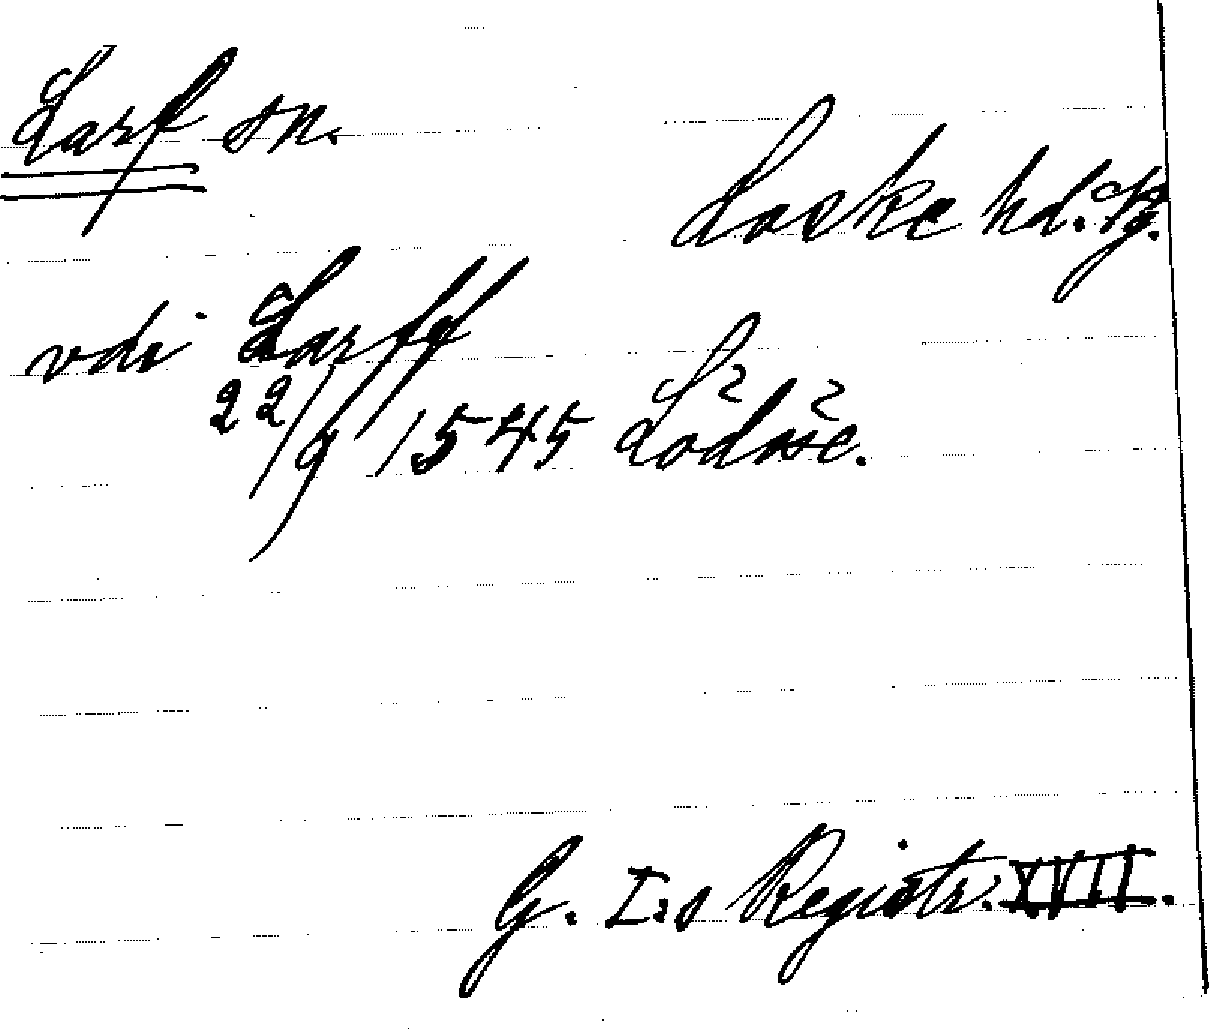 Larf sn.
Laske hd. Kg.
vdi Larff
22/9 1545 Lödöse.
G. I:s Registr. XVII.